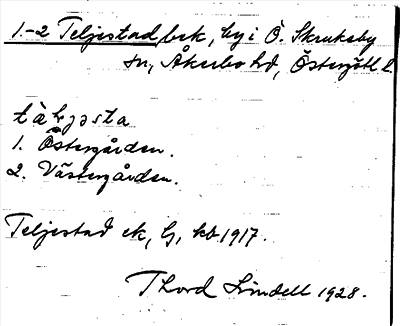 1.-2 Teljestad, bsk, by i Ö. Skrukeby
sn, Åkerbo hd, Östergötl. l.
tàljəsta
1. Östergården.
2. Västergården.
Teljestad ek, G, kb 1917.
Thord Lindell 1928.